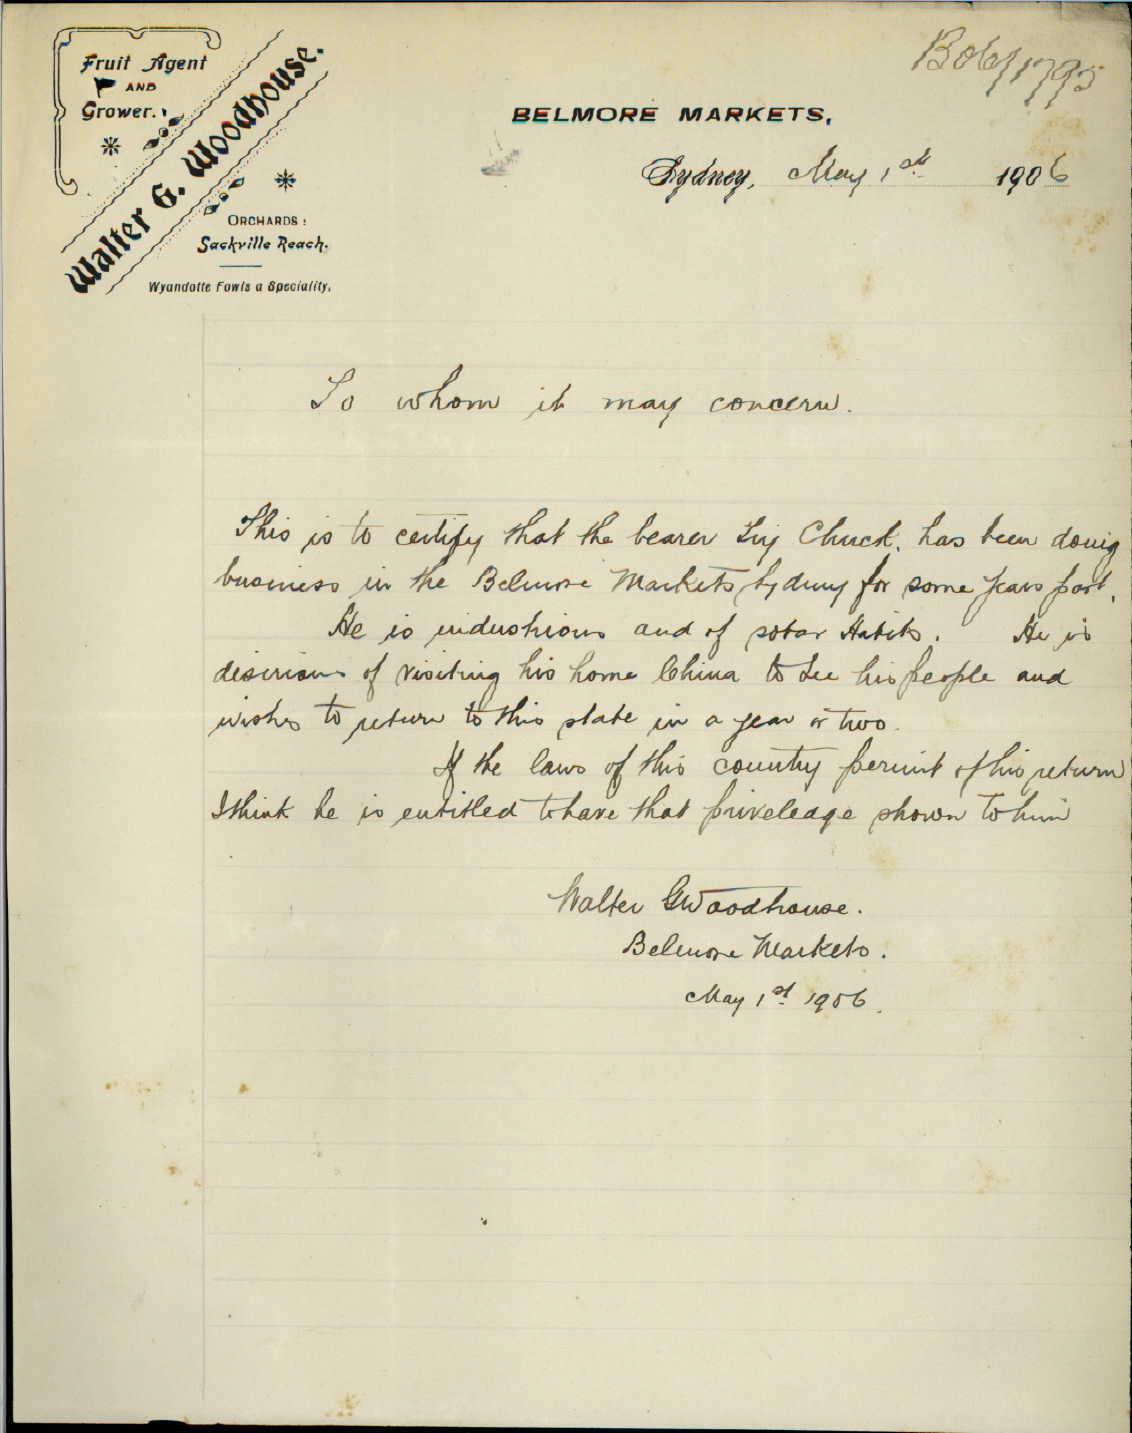 Fruit Agent
AND
Grower.
Walter G. Woodhouse.
ORCHARDS:
Sackville Reach.
Wyandotte Fowls a Speciality.
B06/1795
BELMORE MARKETS,
Sydney, May 1st 1906
To whom it may concern.
This is to certify that the bearer Chuck. has been doing
business in the Belmore Markets Sydney for some years past.
He is industrious and of sobar Habits. He is
desirious of visiting his home China to see his people and
wishes to return to this state in a year or two.
If the laws of this country permit of his return
I think he is entitled to have that priveleage shown to him
Walter G Woodhouse.
Belmore Markets.
May 1st 1906.